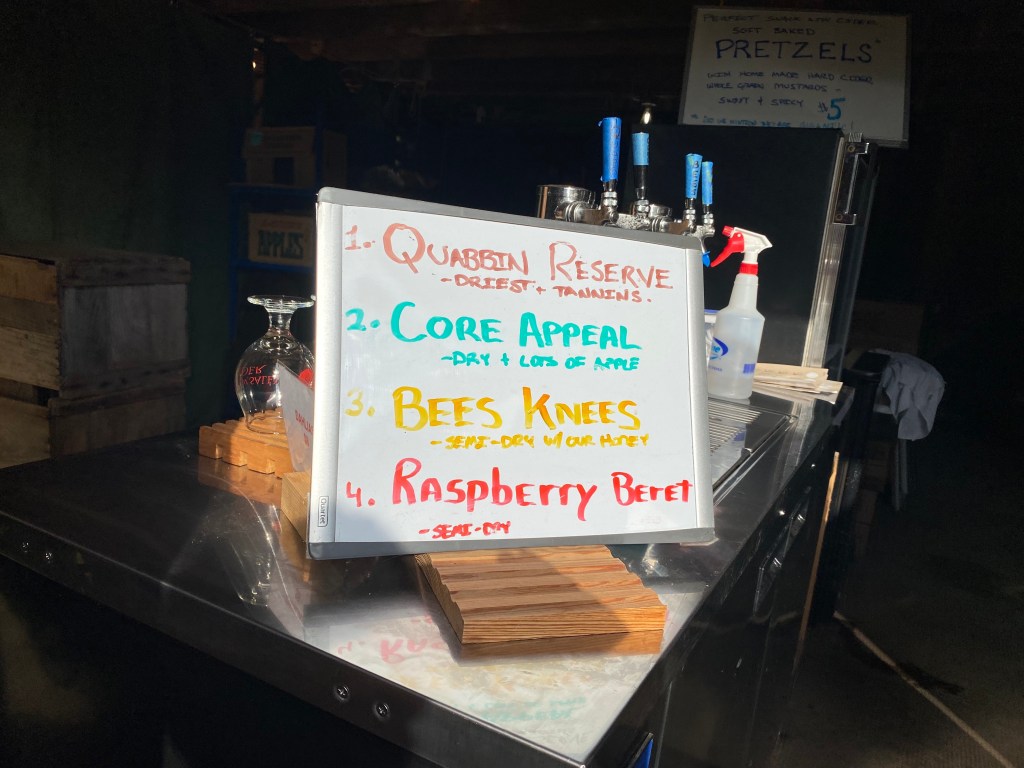 PERFECT SNACK W/ CIDER
SOFT BAKED
PRETZELS
WITH HOME MADE HARD CIDER
WHOLE GRAIN MUSTARDS -
SWEET + SPICY $5
APPLES
1. QUABBIN RESERVE
- DRIEST + TANNINS.
2. CORE APPEAL
- DRY + LOTS OF APPLE
3. BEES KNEES
- SEMI-DRY W/ OUR HONEY
4. RASPBERRY BERET
- SEMI-DRY
Quartet